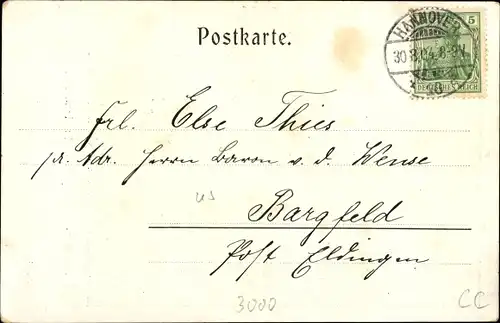 Postkarte.
HANNOVER
30.8.04. 8-9V.
5
DEUTSCHES REICH
Frl. Else Thies
pr. Adr. Herrn Baron v. d. Wense
Bargfeld
Post Eldingen
3000
CC